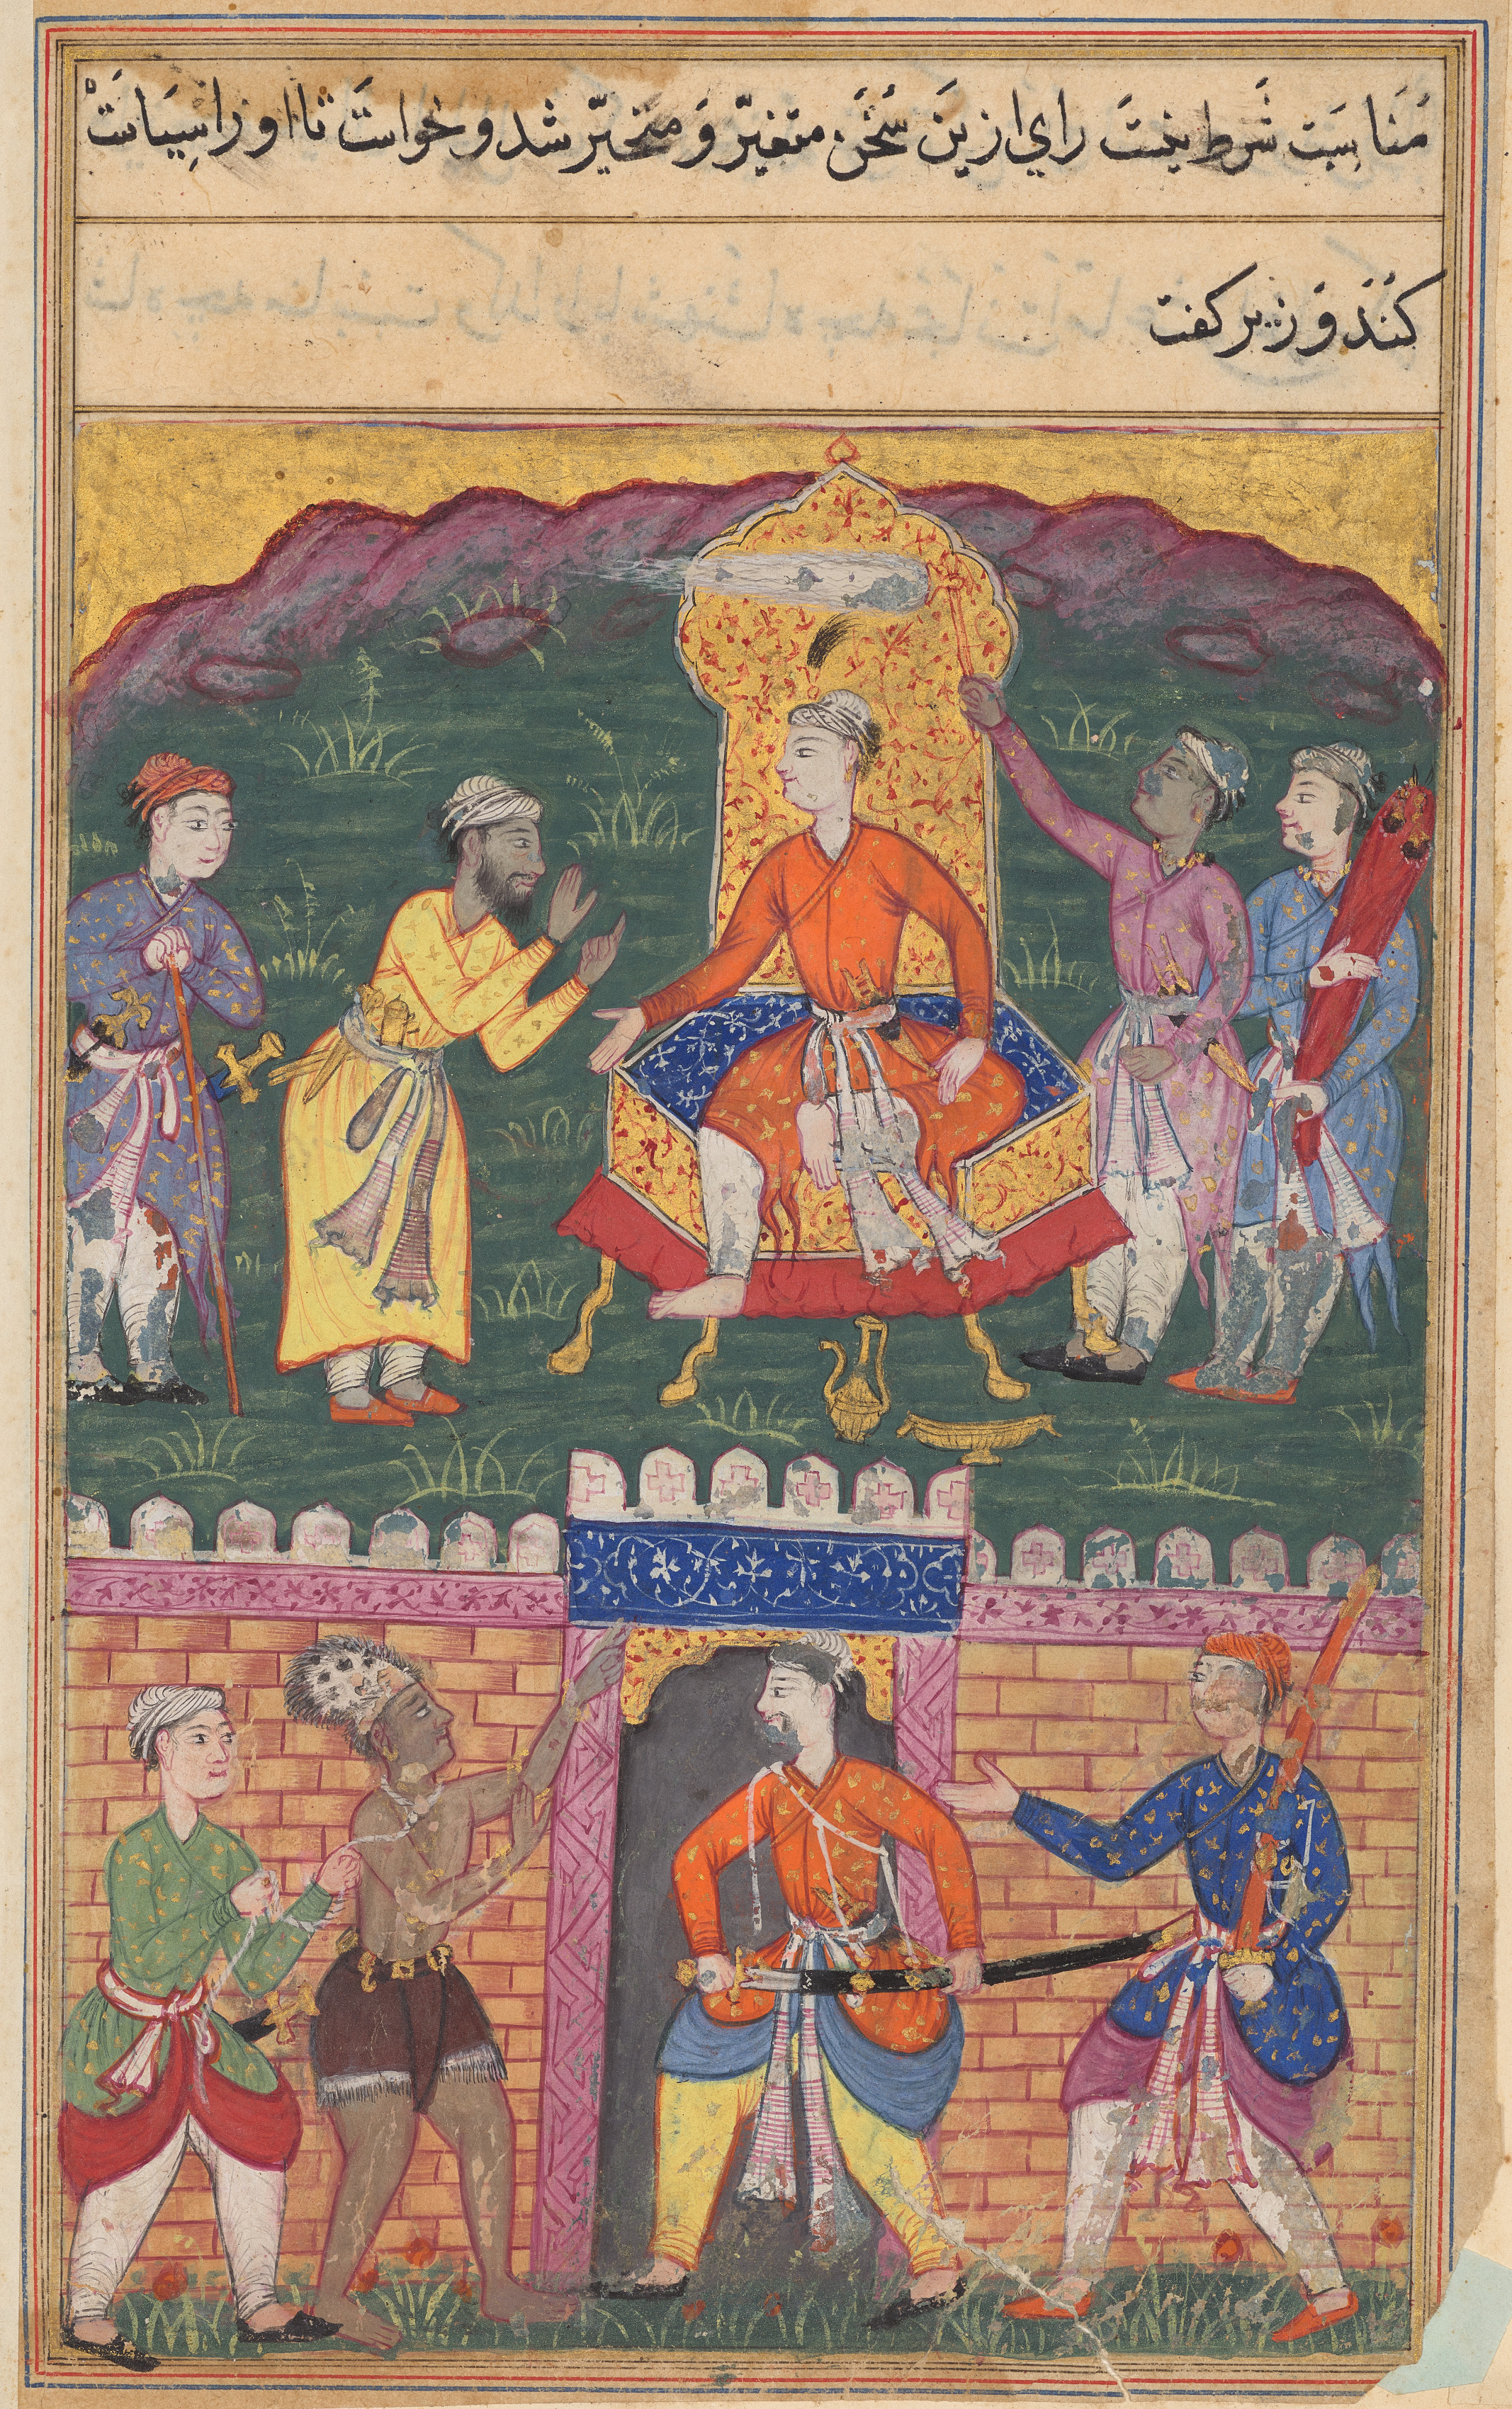 مُنَاسِبَت شَرط نیستَ راي ازینَ سُخَن متغیّر وَ متحیّر شد و خواستَ تا او را سِیَاسَتْ
کُنَدْ وَزیر کفت